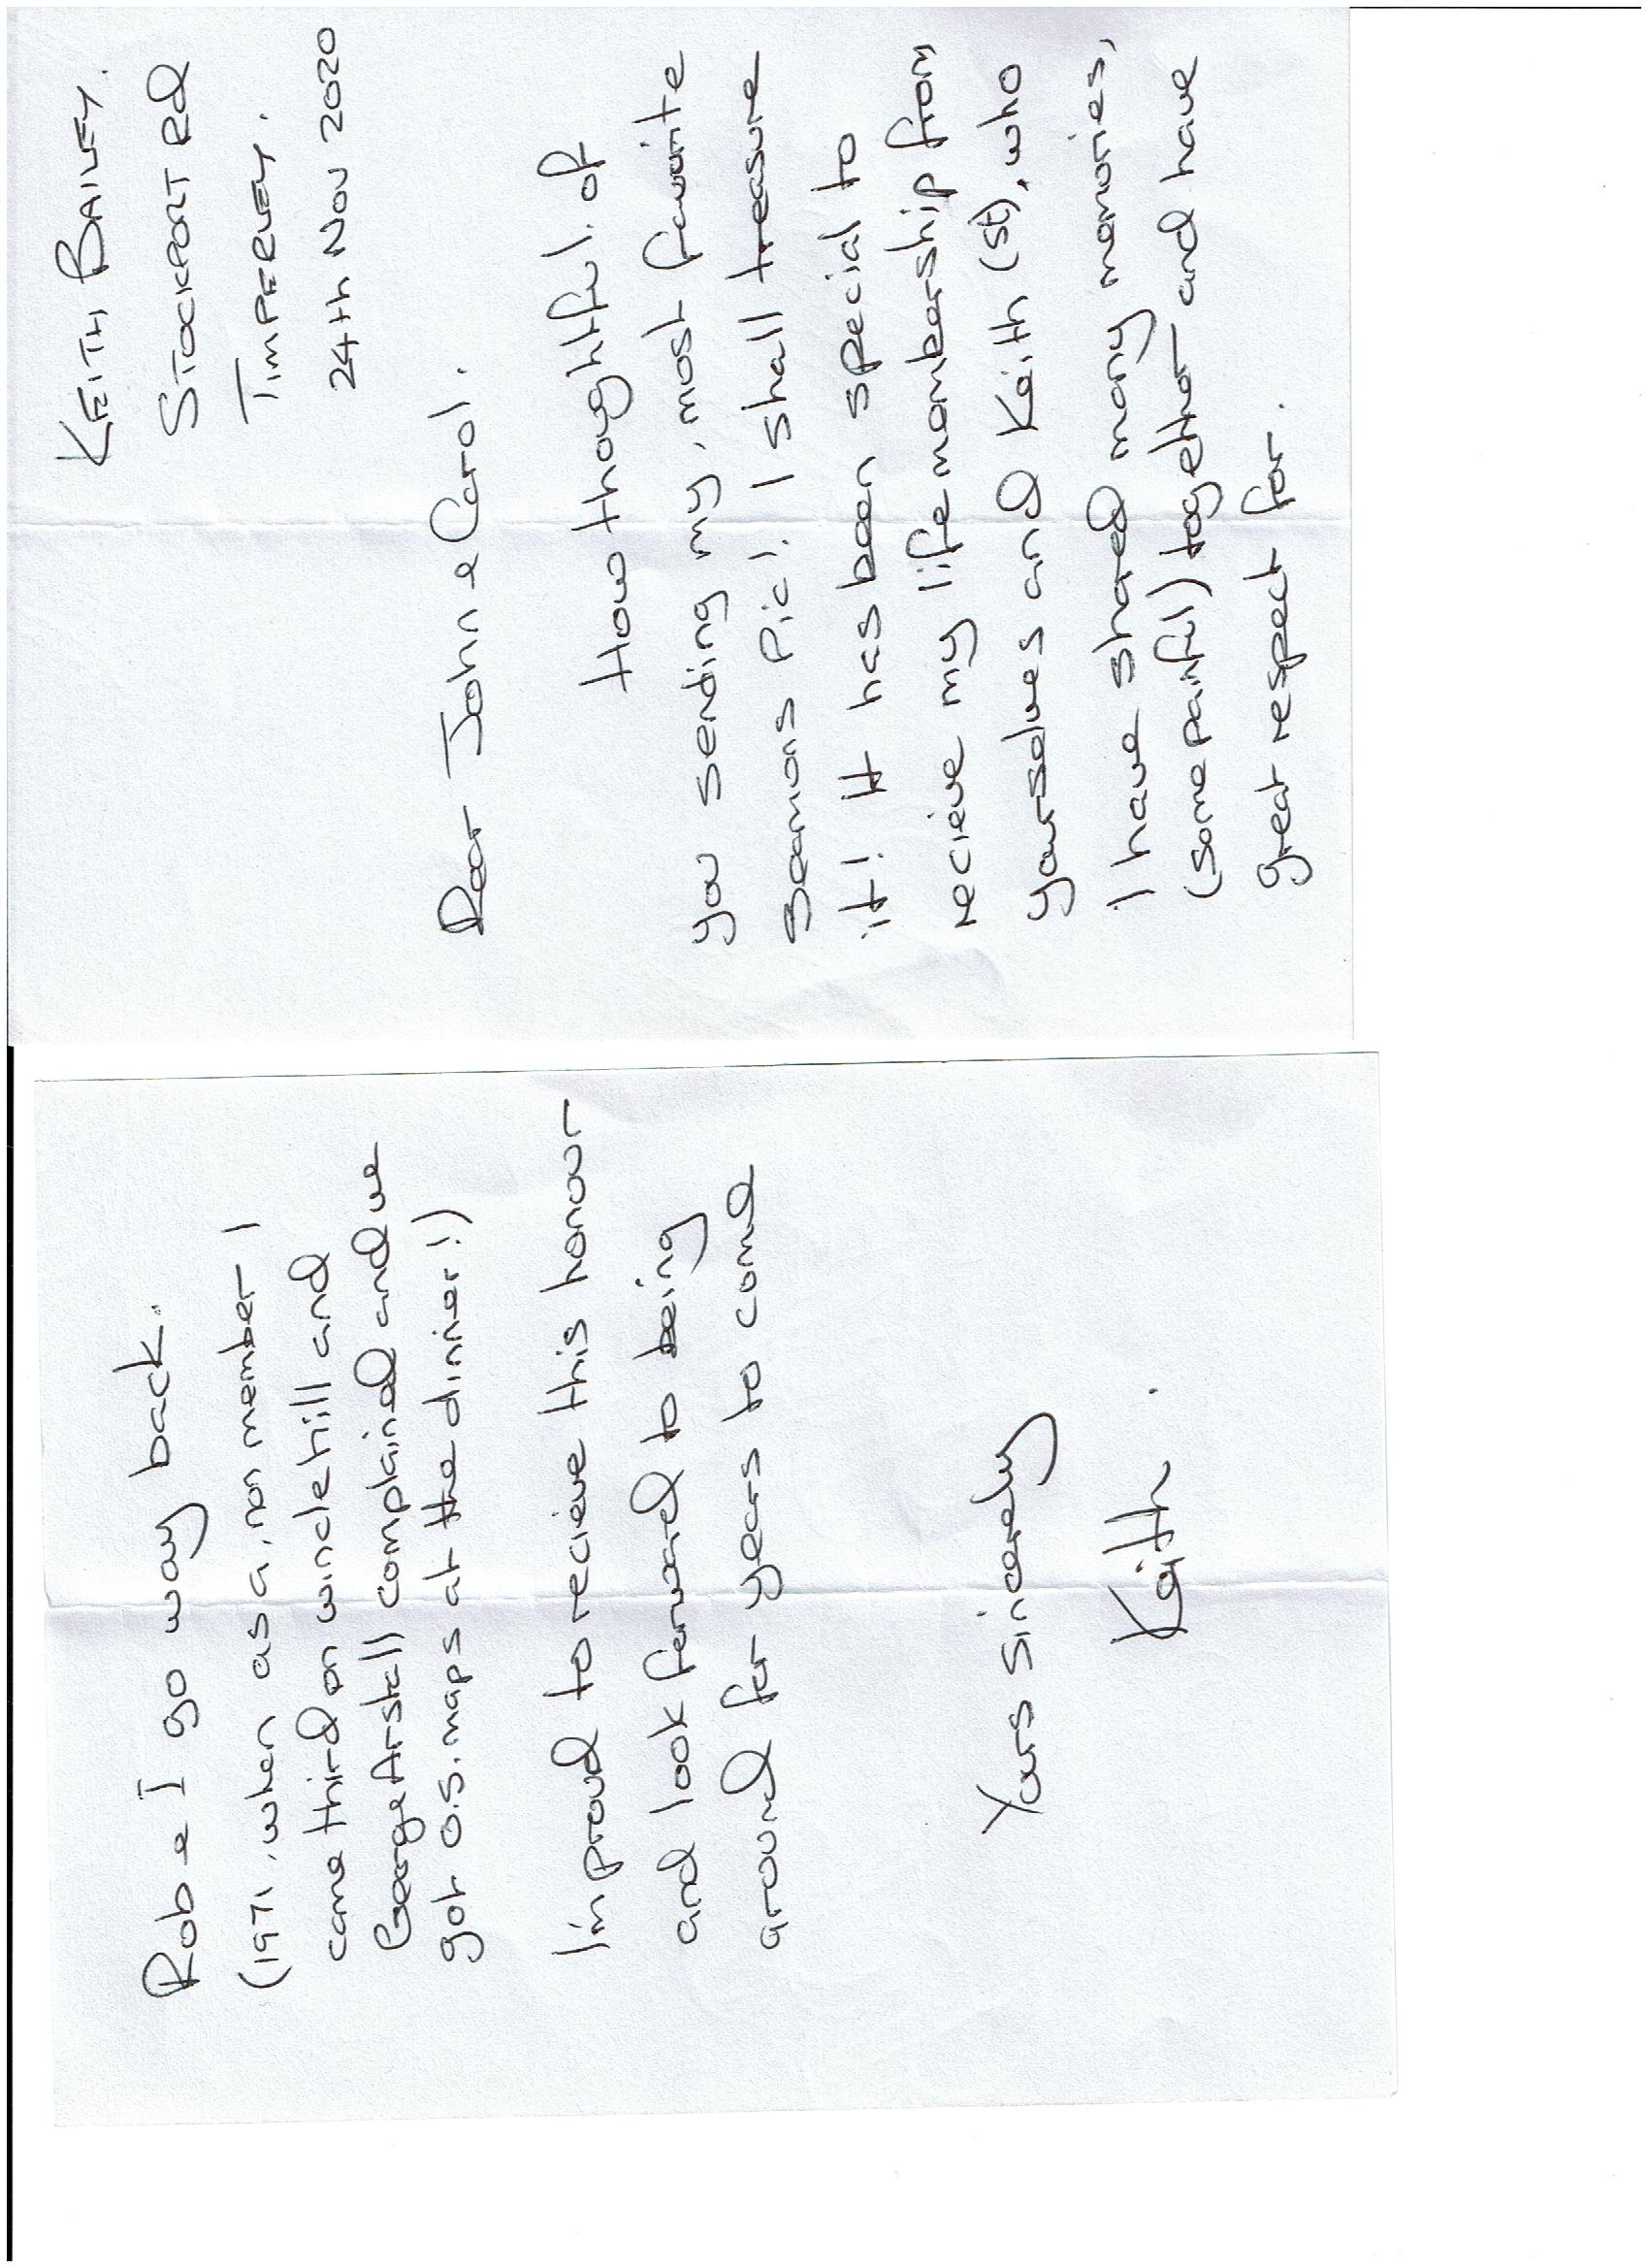 KEITH BAILEY.
STOCKPORT RD
TIMPERLEY.
24th NOV 2020
Dear John & Carol.
How thoughtful. of
you sending my, most favourite
Beamons Pic!. I shall treasure
it! It has been special to
recieve my life membership from
yourselves and Keith (St), who
I have shared many memories,
(some painful) together and have
great respect for.
Rob & I go way back.
(1971, when as a, non member I
came third on wincle hill and
George Arstall complained and we
got O.S. maps at the dinner!!)
I'm proud to recieve this honour
and look forward to being
around for years to come
Yours Sincerely
Keith.